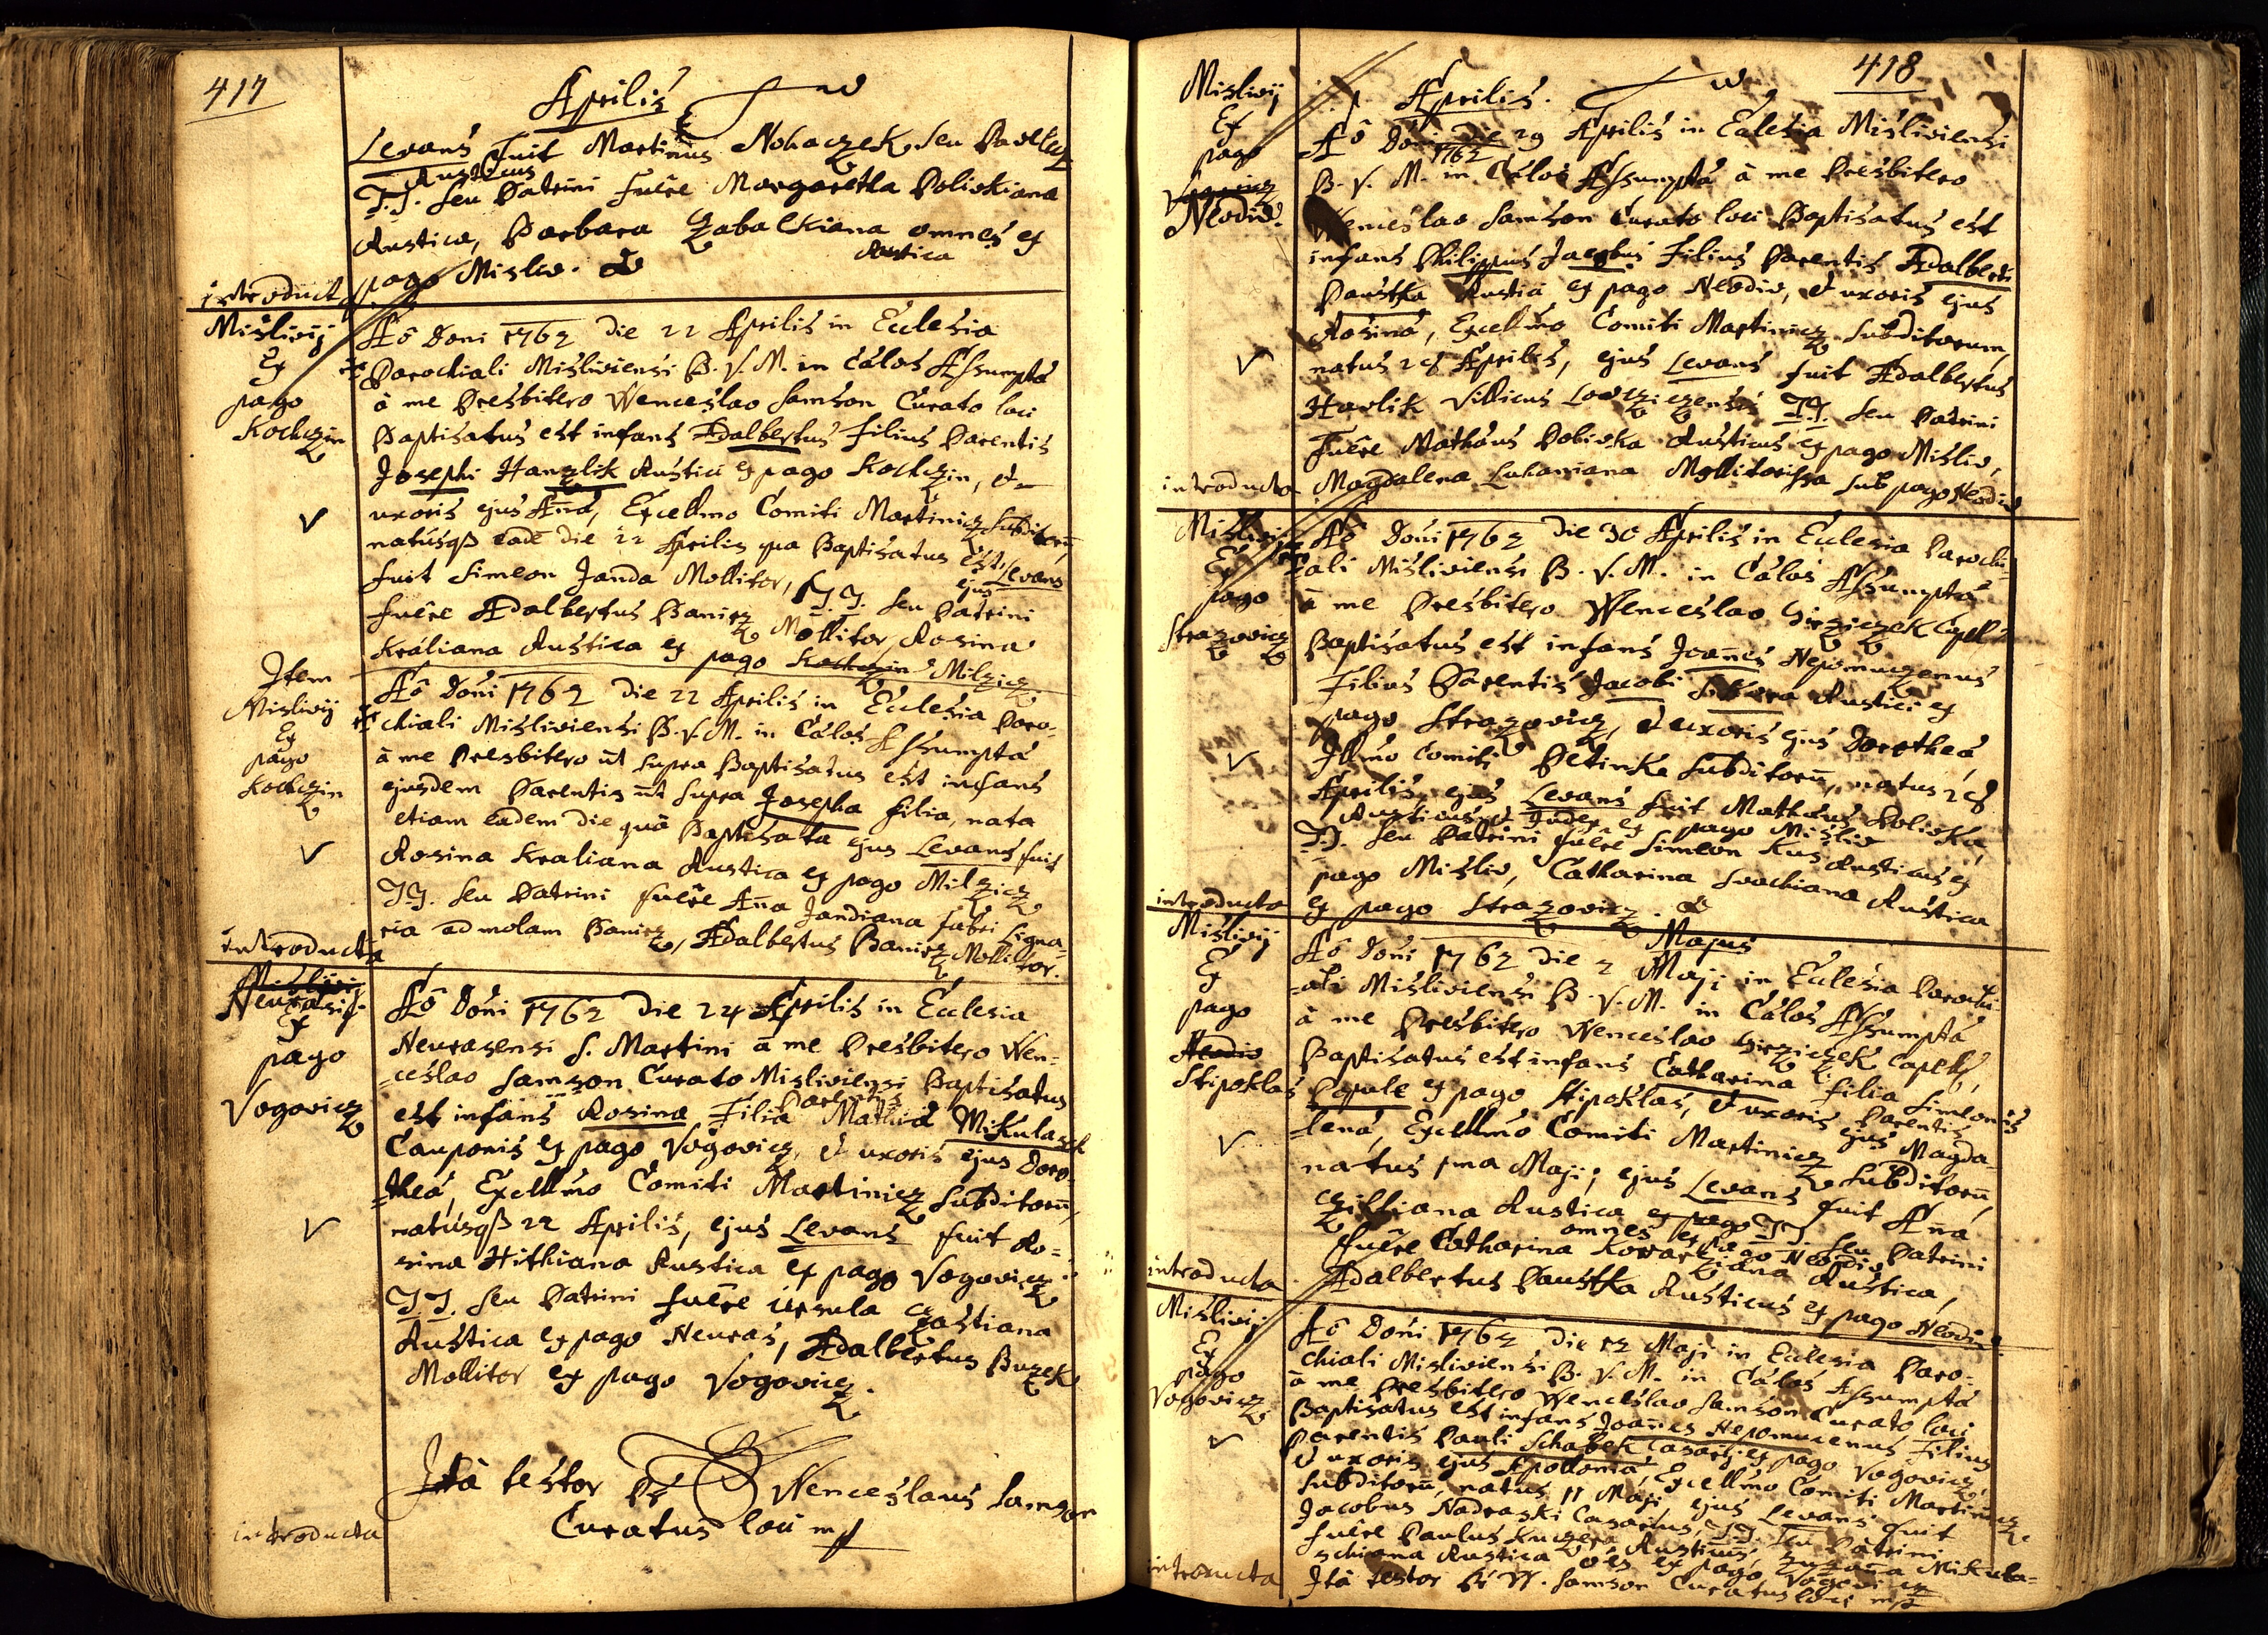 417
Aprilis
Levans fuit Martinus Nohaczek seu Pavlicz
Rusticus
T.T. seu Patrini fuêre Margaretha Polivkiana
Rustica, Barbara Zabalkiana omnes ex
Rustica
pago Misliv.
introducta
Mislivij
Ex
pago
Kochczin
Aô Doni 1762 die 22 Aprilis in Ecclesia
Parochiali Misliviensi B. V. M. in Cálos Assumptá
à me Presbitero Wenceslao Samson Curato loci
Baptisatus est infans Adalbertus filius Parentis
Josephi Hanzlik Rustici ex pago Kochczin, et
uxoris ejus Aña, Excellmo Comiti Martinicz subditorũ,
natusqß eadē die 22 Aprilis qua Baptisatus est, ejus Levans
fuit Simeon Janda Mollitor, T.T. seu Patrini
fuêre Adalbertus Baniez Mollitor, Rosina
Kraliana Rustica ex pago Kochczin Milzicz.
Item
Mislivij
Ex
pago
Kochczin
Aô Doñi 1762 die 22 Aprilis in Ecclesia Paro-
chiali Misliviensi B. V. M. in Cálos Assumptá
à me Presbitero ut supra Baptisatus est infans
ejusdem Parentis ut supra Josepha filia, nata
etiam eadem die quâ Baptisata ejus Levans fuit
Rosina Kraliana Rustica ex pago Milzicz
T.T. seu Patrini fuêre Aña Jandiana fabri signa-
ria ad molam Baniez, Adalbertus Baniez Mollitor.
introducta
Mislivij
Neurasij
Ex
pago
Vogovicz
Aô Doñi 1762 die 24 Aprilis in Ecclesia
Neurasensi S. Martini à me Presbitero Wen-
ceslao Samson Curato Misliviensi Baptisatus
Parentis
est infans Rosina Filia Mathiá Mikulasch
Cauponis ex pago Vogovicz, et uxoris ejus Doro-
theá, Excellmo Comiti Martinicz subditorũ,
natusqß 22 Aprilis, ejus Levans fuit Ro-
sina Hithiana Rustica ex pago Vogovicz.
T.T. seu Patrini fuêre Ursula Czastiana
Rustica ex pago Neuras, Adalbertus Buzek
Mollitor ex pago Vogovicz.
Ità testor Wenceslaus Samson
Curatus loci mp
introducta
418
Aprilis.
Mislivij
Ex
pago
Neodiv.
Aô Doñi die 29 Aprilis in Eclesia Misliviensi
1762
B. V. M. in Cálos Assumptá à me Presbitero
Wenceslao Samson Curato loci Baptisatus est
infans Philippus Jacobus Filius Parentis Adalberti
Paustka Rustici ex pago Neodiv, et uxoris ejus
Rosiná, Excellmo Comiti Martinicz subditorum,
natus 28 Aprilis, ejus Levans fuit Adalbertus
Havlik Villicus T.T. seu Patrini
Fuêre Matháus Polivka Rusticus ex pago Misliv,
Magdalena Luhaniana Mollitorissa sub pago Neodiv
introducta
Mislivij
Ex
pago
Strazovicz
Aô Doñi 1762 die 30 Aprilis in Ecclesia Parochi-
ali Misliviensi B. V. M. in Cálos Assumptá
à me Presbitero Wenceslao Hirziczek Capell
Baptisatus est infans Joañes Nepomuzenus
Filius Parentis Jacobi Rustici ex
pago Strazovicz, et uxoris ejus Dorotheá
Illmo Comiti Petinka subditorũ, natus 28
Aprilis, ejus Levans fuit Matháus Polivka
Rusticus et Judex ex pago Misliv
T.T. seu Patrini fuêre Simeon Kus Rusticus ex
pago Misliv, Catharina Svachiana Rustica
ex pago Strazovicz.
introducta
Majus
Mislivij
Ex
pago
Neodiv
Stipoklas
Aô Doñi 1762 die 2 Maji in Ecclesia Parochi-
ali Misliviensi B. V. M. in Cálos Assumptá
à me Presbitero Wenceslao Hirziczek Capell,
Baptisatus est infans Catharina filia Simeonis
Parentis
Popule ex pago Stipoklas, et uxoris ejus Magda-
lená, Excellmo Comiti Martinicz subditorũ,
natus 1ma Maji; ejus Levans fuit Aña
Czilliana Rustica ex pago T.T. seu Patrini
omnes ex pago Neodiv
fuêre Catharina Kovarziana Rustica,
Adalbertus Paustka Rusticus ex pago Neodiv.
introducta
Mislivij
Ex
pago
Vogovicz
Aô Doñi 1762 die 12 Maji in Ecclesia Paro-
chiali Misliviensi B. V. M. in Cálos Assumptá
à me Presbitero Wenceslao Samson Curato loci
Baptisatus est infans Joañes Nepomucenus Filius
Parentis Pauli Schabek Casarij ex pago Vogovicz,
et uxoris ejus Apolloniá, Excellmo Comiti Martinicz
subditorũ, natus 11 Maji, ejus Levans fuit
Jacobus Nadraski Casarius, T.T. seu Patrini
fuêre Paulus Kuczera Rusticus, Zuzaña Mikula-
schiana Rustica oês ex pago Vogovicz
Ità testor W. Samson Curatus loci mp
introducta